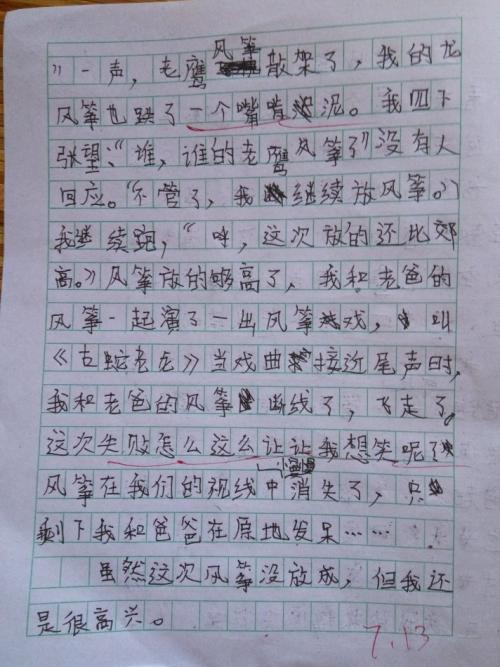 ”一声，老鹰风筝散架了，我的龙
风筝也跌了一个嘴啃泥。我四下
张望：“谁，谁的老鹰风筝了”没有人
回应。“不管了，我继续放风筝。”
我继续跑，“呼，这次放的还比较
高。”风筝放的够高了，我和老爸的
风筝一起演了一出风筝戏，叫
《古蛇老龙》当戏曲接近尾声时，
我和老爸的风筝断线了，飞走了。
这次失败怎么这么让让我想笑呢？
风筝在我们的视线中消失了，只
剩下我和爸爸在原地发呆……
虽然这次风筝没放成，但我还
是很高兴。
7.13